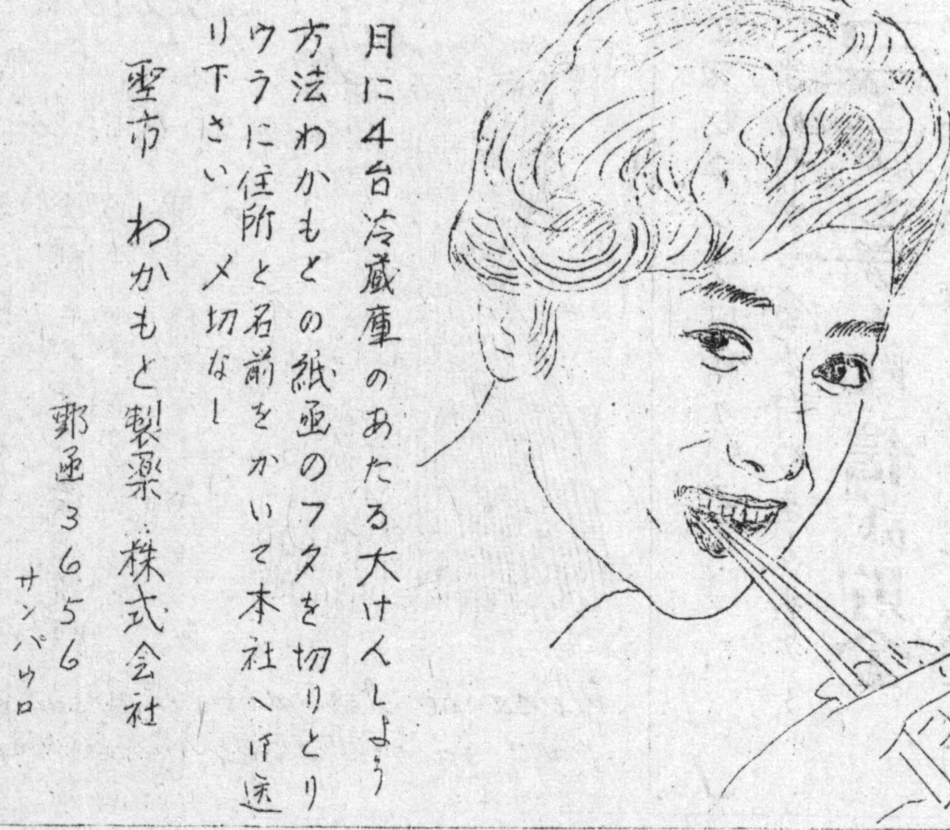 月に4台冷蔵庫のあたる大けんしよう
方法わかもとの紙函のフタを切りとり
ウラに住所と名前をかいて本社 御送
り下さい 〆切なし
聖市 わかもと製薬株式会社
郵函3656
サンパウロ